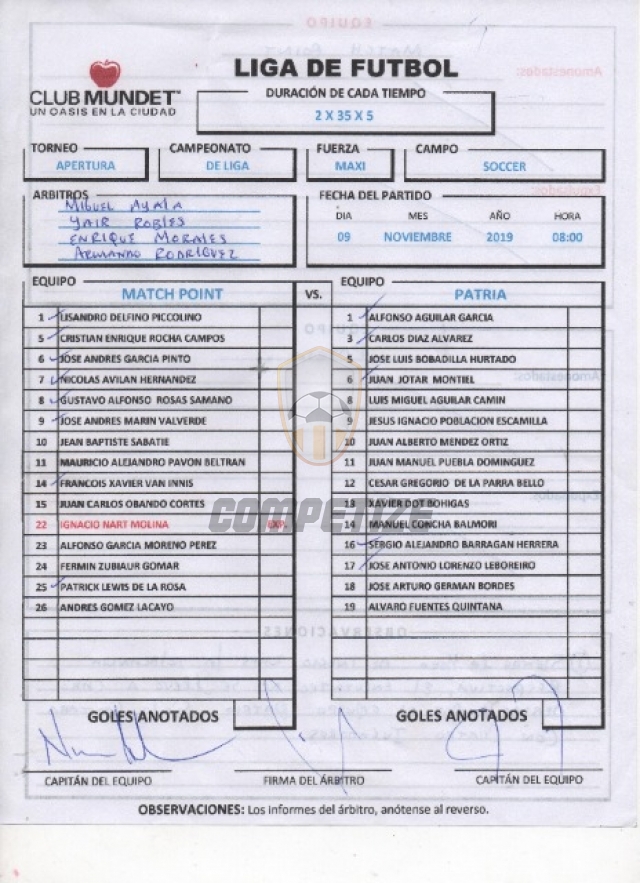 LIGA DE FUTBOL
CLUB MUNDET
UN OASIS EN LA CIUDAD
DURACIÓN DE CADA TIEMPO
2 X 35 X 5
TORNEO CAMPEONATO FUERZA CAMPO
APERTURA DE LIGA MAXI SOCCER
ARBITROS
MIGUEL AYALA
YAIR ROBLES
ENRIQUE MORALES
ARMANDO RODRIGUEZ
FECHA DEL PARTIDO
DIA MES AÑO HORA
09 NOVIEMBRE 2019 08:00
EQUIPO
MATCH POINT
VS.
EQUIPO
PATRIA
1 LISANDRO DELFINO PICCOLINO
5 CRISTIAN ENRIQUE ROCHA CAMPOS
6 JOSE ANDRES GARCIA PINTO
7 NICOLAS AVILAN HERNANDEZ
8 GUSTAVO ALFONSO ROSAS SAMANO
9 JOSE ANDRES MARIN VALVERDE
10 JEAN BAPTISTE SABATIE
11 MAURICIO ALEJANDRO PAVON BELTRAN
14 FRANCOIS XAVIER VAN INNIS
15 JUAN CARLOS OBANDO CORTES
22 IGNACIO NART MOLINA EXP.
23 ALFONSO GARCIA MORENO PEREZ
24 FERMIN ZUBIAUR GOMAR
25 PATRICK LEWIS DE LA ROSA
26 ANDRES GOMEZ LACAYO
1 ALFONSO AGUILAR GARCIA
3 CARLOS DIAZ ALVAREZ
5 JOSE LUIS BOBADILLA HURTADO
6 JUAN JOTAR MONTIEL
8 LUIS MIGUEL AGUILAR CAMIN
9 JESUS IGNACIO POBLACION ESCAMILLA
10 JUAN ALBERTO MENDEZ ORTIZ
11 JUAN MANUEL PUEBLA DOMINGUEZ
12 CESAR GREGORIO DE LA PARRA BELLO
13 XAVIER DOT BOHIGAS
14 MANUEL CONCHA BALMORI
16 SERGIO ALEJANDRO BARRAGAN HERRERA
17 JOSE ANTONIO LORENZO LEBOREIRO
18 JOSE ARTURO GERMAN BORDES
19 ALVARO FUENTES QUINTANA
COMPETIZE
GOLES ANOTADOS GOLES ANOTADOS
CAPITÁN DEL EQUIPO FIRMA DEL ÁRBITRO CAPITÁN DEL EQUIPO
OBSERVACIONES: Los informes del árbitro, anótense al reverso.